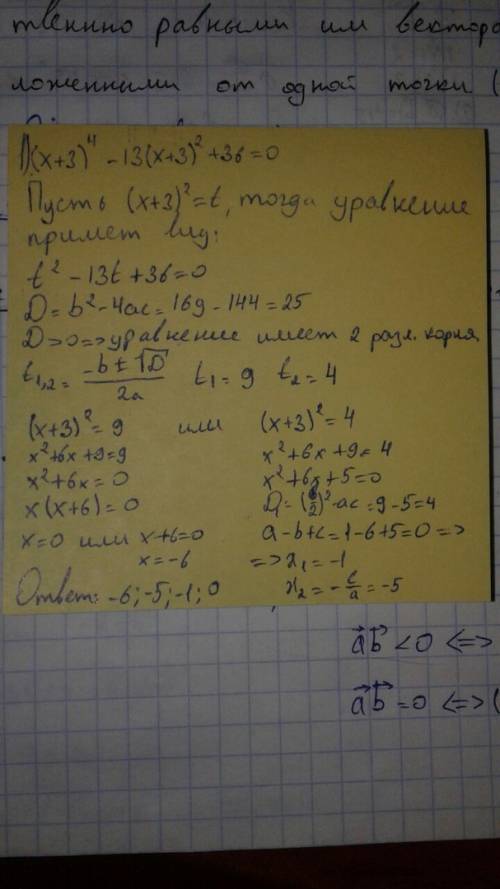 твенно равными им вектора
ложенными от одной точки (
1) (x+3)⁴ - 13(x+3)² + 36 = 0
Пусть (x+3)² = t, тогда уравнение
примет вид:
t² - 13t + 36 = 0
D = b² - 4ac = 169 - 144 = 25
D > 0 => уравнение имеет 2 разл. корня
t₁,₂ = (-b ± √D)/2a   t₁ = 9   t₂ = 4
(x+3)² = 9   или   (x+3)² = 4
x² + 6x + 9 = 9   x² + 6x + 9 = 4
x² + 6x = 0   x² + 6x + 5 = 0
x(x+6) = 0   D₁ = (6/2)² - ac = 9 - 5 = 4
x = 0 или x+6 = 0   a - b + c = 1 - 6 + 5 = 0 =>
x = -6   => x₁ = -1
Ответ: -6; -5; -1; 0   x₂ = -c/a = -5
a⃗b⃗ < 0 <=>
a⃗b⃗ = 0 <=> (